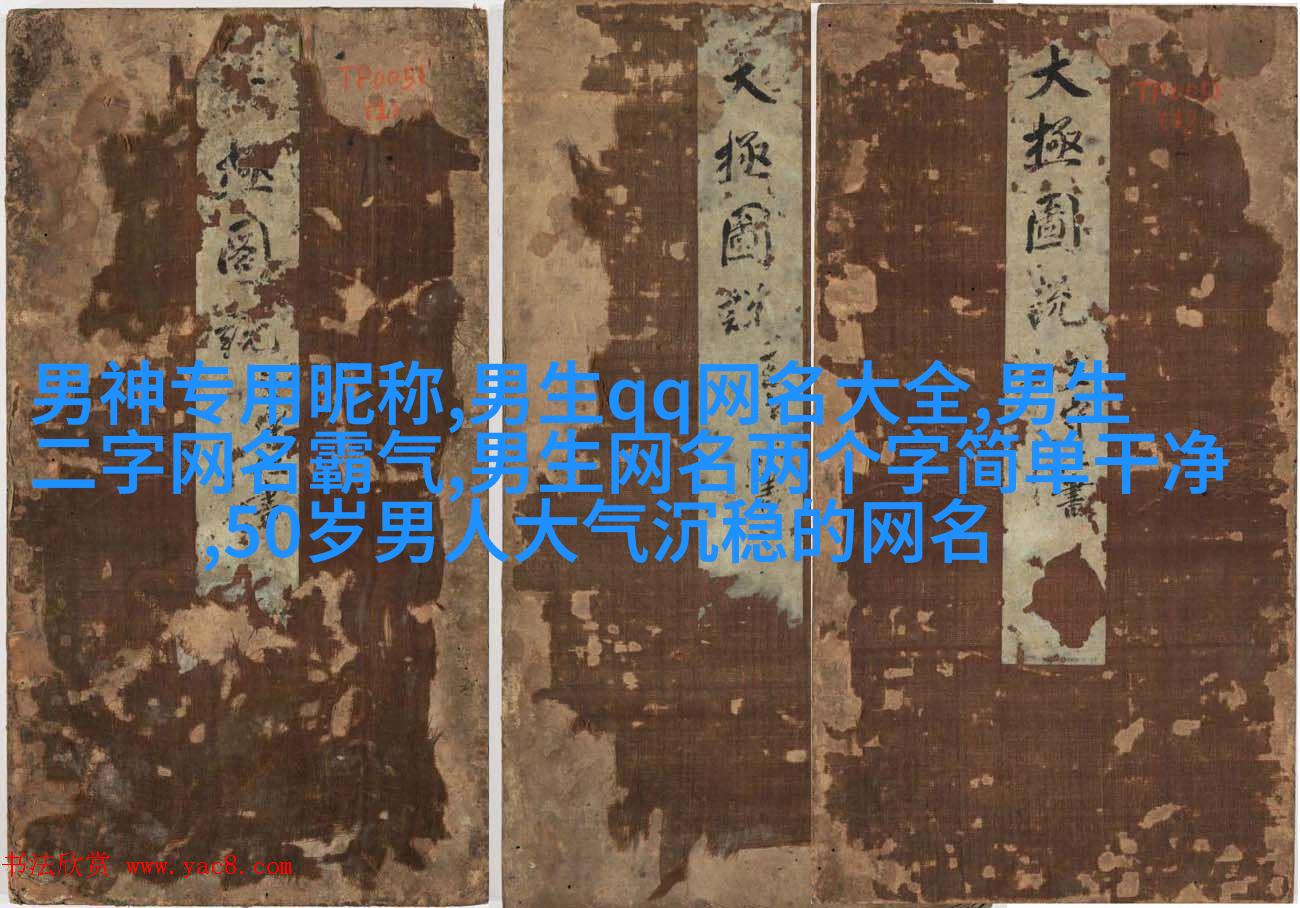 TP0051
(1)
極圖說
書
大極圖說
書
大極圖说
書
男神专用昵称,男生qq网名大全,男生
二字网名霸气,男生网名两个字简单干净
,50岁男人大气沉稳的网名
书法欣赏 www.yac8.com